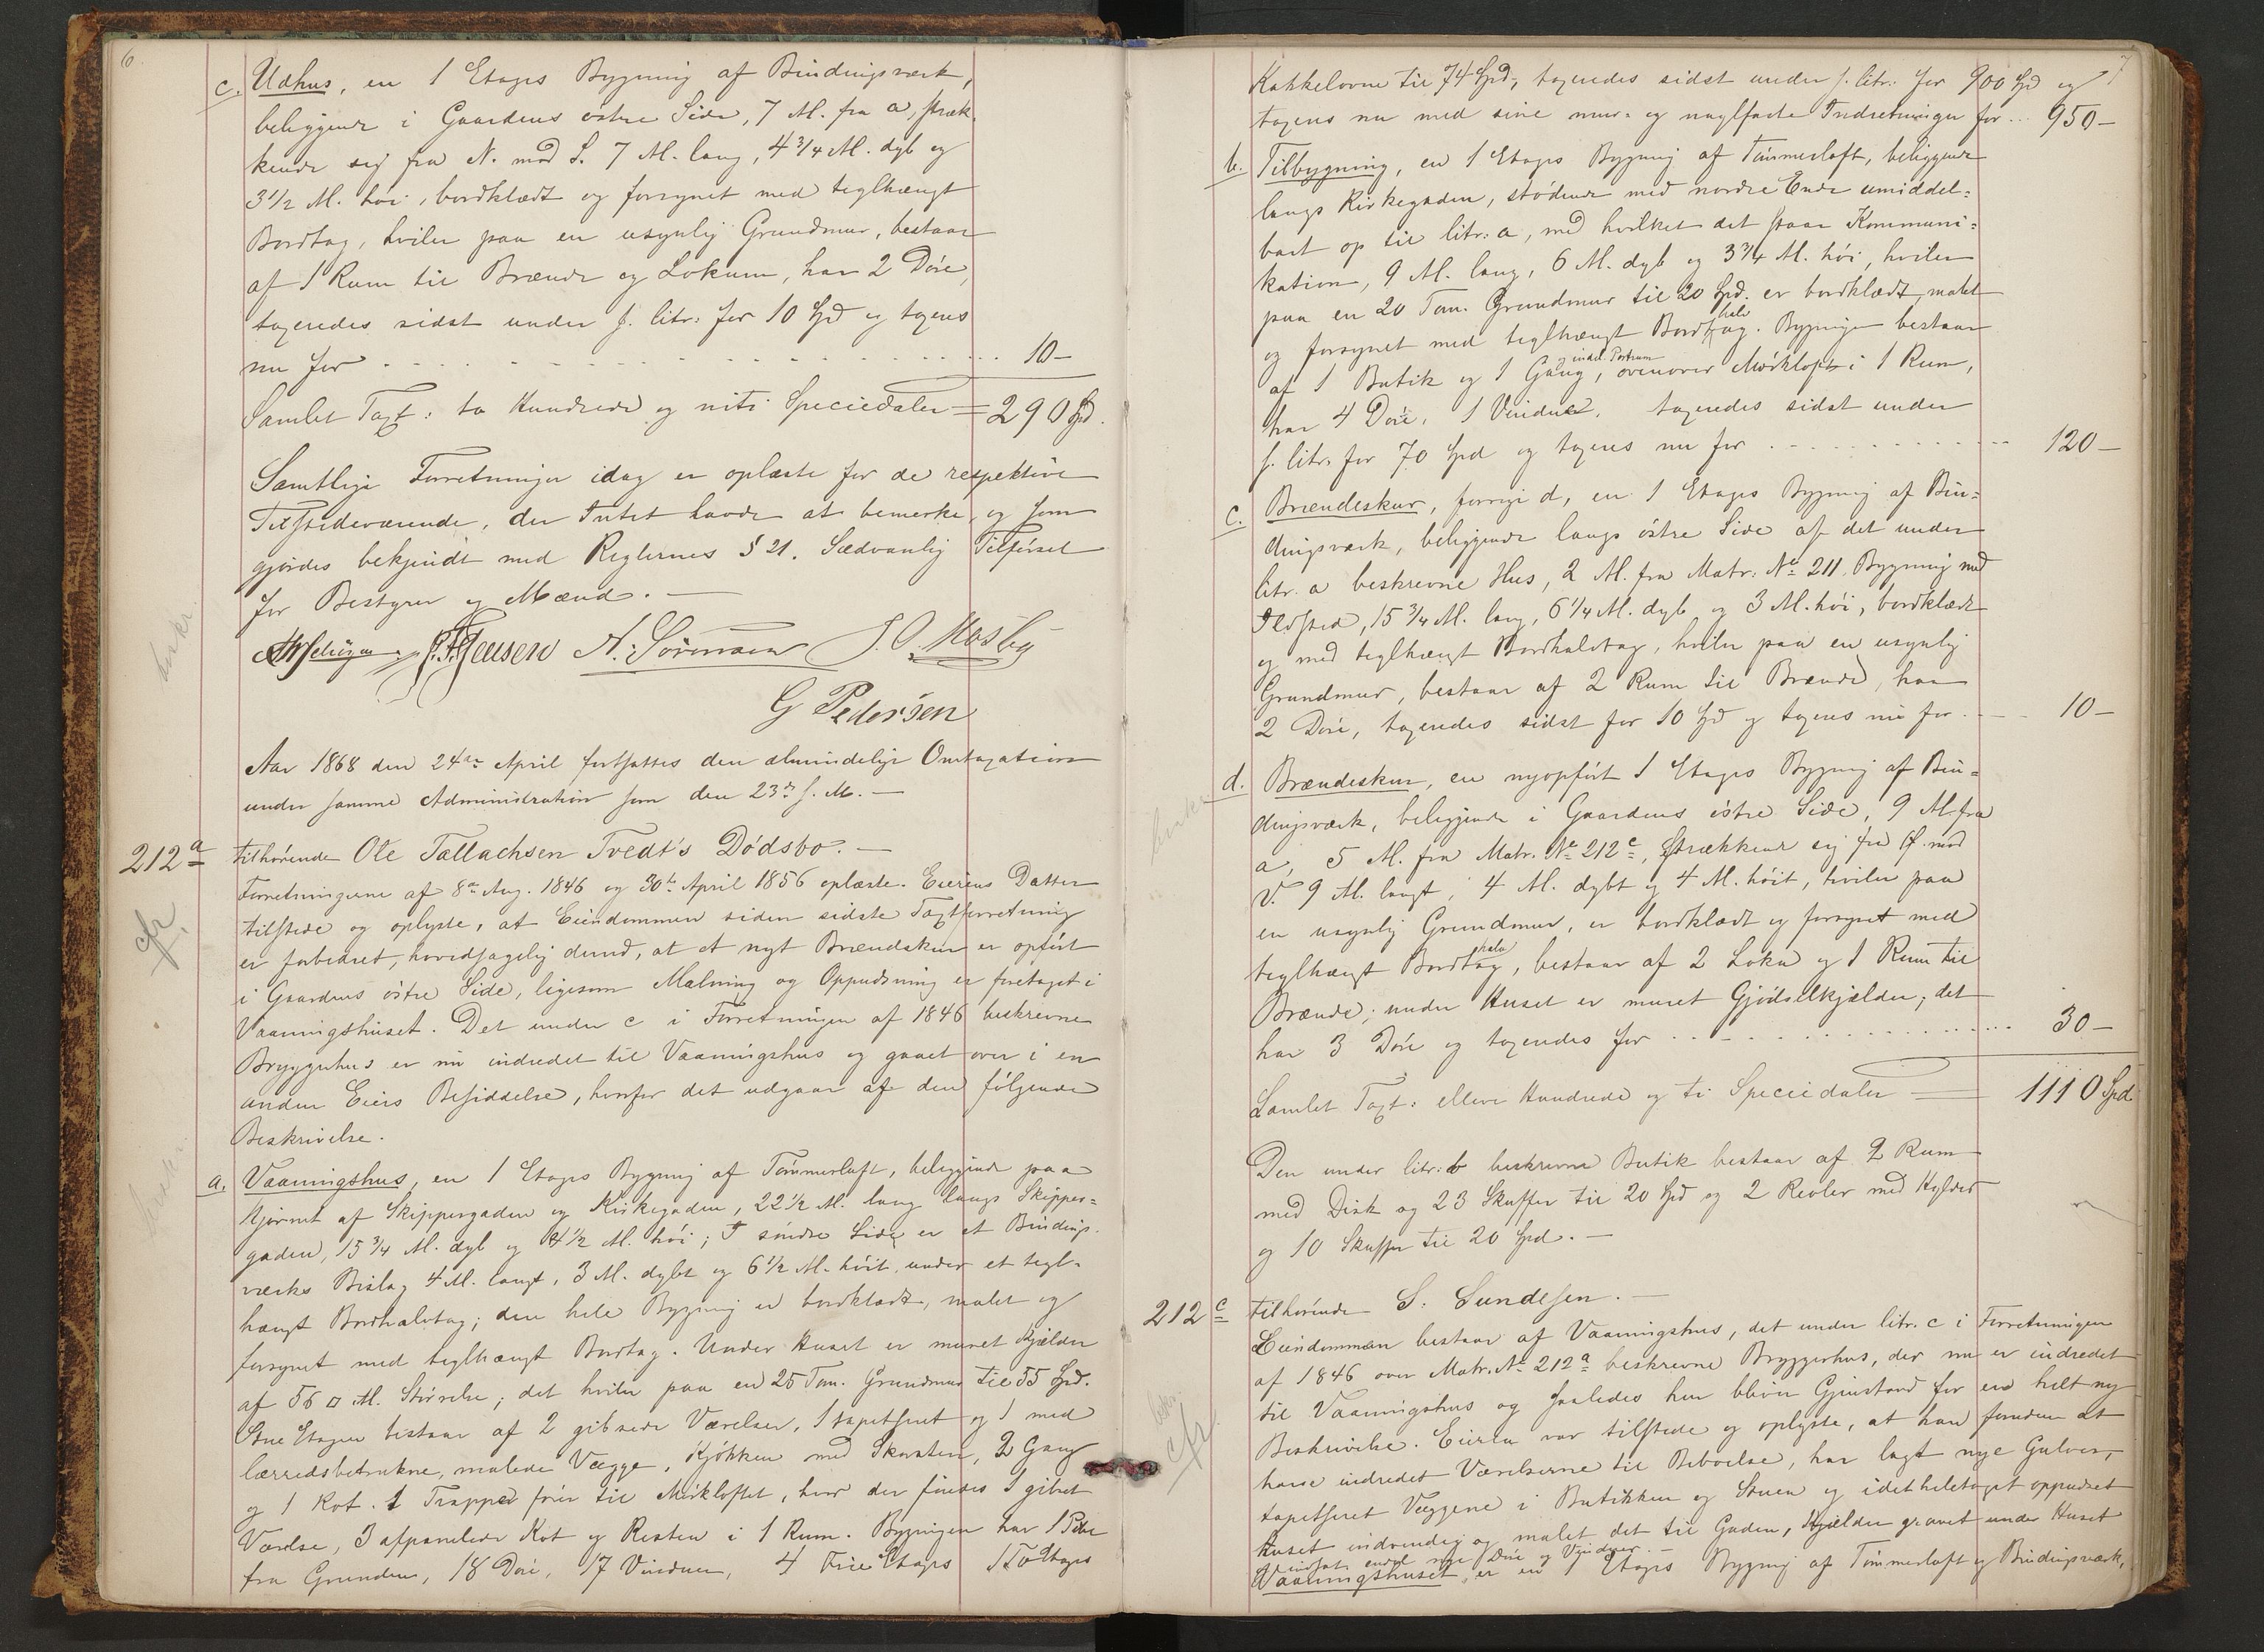 6.
c. Udhus, en 1 Etages Bygning af Bindingsværk,
beliggende i Gaardens østre Side, 7 Al. fra a, stræk-
kende sig fra N. mod S. 7 Al. lang, 4 3/4 Al. dyb og
3 1/2 Al. høi, bordklædt og forsynet med teglhængt
Bordtag, hviler paa en usynlig Grundmur, bestaar
af 1 Rum til Brænde og Lokum, har 2 Døre,
taxeredes sidst under s. litr. for 10 Spd og taxeres
nu for . . . . 10 -
Samlet Taxt: to Hundrede og niti Speciedaler = 290 Spd.
Samtlige Forretninger idag er oplæste for de respektive
Tilstedeværende, der Intet havde at bemerke, og som
gjordes bekjendt med Reglernes § 21. Sædvanlig Tilførsel
for Bestyrer og Mænd. -
Jensen N. Sørensen J. O. Mosby
G Pedersen
Aar 1868 den 24de April fortsattes den almindelige Omtaxation
under samme Administration som den 23de s. M. -
212 a tilhørende Ole Tallachsen Tvedt's Dødsbo. -
Forretningerne af 8de Aug. 1846 og 30te April 1856 oplæste. Eierens Datter
tilstede og oplyste, at Eiendommen siden sidste Taxtforretning
er forbedret, hovedsagelig derved, at et nyt Brændskur er opført
i Gaardens østre Side, ligesom Malning og Oppudsning er foretaget i
Vaaningshuset. Det under c i Forretningen af 1846 beskrevne
Bryggerhus er nu indredet til Vaaningshus og gaaet over i en
anden Eiers Besiddelse, hvorfor det udgaar af den følgende
Beskrivelse.
a. Vaaningshus, en 1 Etages Bygning af Tømmerlaft, beliggende paa
Hjørnet af Skippergaden og Kirkegaden, 22 1/2 Al. lang langs Skipper-
gaden, 15 3/4 Al. dyb og 4 1/2 Al. høi; I søndre Side er et Bindings-
værks Bislag 4 Al. langt, 3 Al. dybt og 6 1/2 Al. høit under et tegl-
hængt Bordhalvtag; den hele Bygning er bordklædt, malet og
forsynet med teglhængt Bordtag. Under Huset er muret Kjælder
af 56 □ Al. Størrelse; det hviler paa en 25 Tom. Grundmur til 55 Spd.
Stue Etagen bestaar af 2 gibsede Værelser, 1 tapetseret og 1 med
lærredsbetrukne, malede Vægge, Kjøkken med Skorsten, 2 Gang
og 1 Kot. 1 Trappe fører til Mørkloftet, hvor der findes 1 gibset
Værelse, 3 afpanelede Kot og Resten i 1 Rum. Bygningen har 1 Pibe
fra Grunden, 18 Døre, 17 Vinduer, 4 Trie Etages 1 To Etages
7
Kakkelovne til 74 Spd, taxeredes sidst under s. litr. for 900 Spd og
taxeres nu med sine mur- og naglfaste Indretninger for .. 950 -
b. Tilbygning, en 1 Etages Bygning af Tømmerlaft, beliggende
langs Kirkegaden, stødende med nordre Ende umiddel-
bart op til litr. a, med hvilket det staar Kommuni-
kation, 9 Al. lang, 6 Al. dyb og 3 3/4 Al. høi, hviler
paa en 20 Tom. Grundmur til 20 Spd. er bordklædt, malet
og forsynet med teglhængt Bordhalvtag. Bygningen bestaar
af 1 Butik og 1 Gang, ovenover Mørkloft i 1 Rum,
har 4 Døre, 1 Vindue. taxeredes sidst under
s. litr. for 70 Spd og taxeres nu for . . . . 120 -
c. Brændeskur, forrige d, en 1 Etages Bygning af Bin-
dingsværk, beliggende langs østre Side af det under
litr. a beskrevne Hus, 2 Al. fra Matr. No 211 Bygning med
Ildsted, 15 3/4 Al. lang, 6 1/4 Al. dyb og 3 Al. høi, bordklædt
og med teglhængt Bordhalvtag, hviler paa en usynlig
Grundmur, bestaar af 2 Rum til Brænde, har
2 Døre, taxeredes sidst for 10 Spd og taxeres nu for . 10 -
d. Brændeskur, en nyopført 1 Etages Bygning af Bin-
dingsværk, beliggende i Gaardens østre Side, 9 Al. fra
a, 5 Al. fra Matr. No 212 c, strækkende sig fra Ø. mod
V. 9 Al. langt, 4 Al. dybt og 4 Al. høit, hviler paa
en usynlig Grundmur, er bordklædt og forsynet med
teglhængt Bordhalvtag, bestaar af 2 Loka og 1 Rum til
Brænde; under Huset er muret Gjødselkjælder; det
har 3 Døre og taxeredes for . . . . 30 -
Samlet Taxt: elleve Hundrede og ti Speciedaler = 1110 Spd.
Den under litr. b beskrevne Butik bestaar af 2 Rum
med Disk og 23 Skuffer til 20 Spd og 2 Reoler med Hylder
og 10 Skuffer til 20 Spd. -
212 c tilhørende S. Sundesen. -
Eiendommen bestaar af Vaaningshus, det under litr. c i Forretningen
af 1846 over Matr. No 212 a beskrevne Bryggerhus, der nu er indredet
til Vaaningshus og saaledes her bliver Gjenstand for en helt ny
Beskrivelse. Eieren var tilstede og oplyste, at han foruden at
have indredet Værelserne til Beboelse, har lagt nye Gulver,
tapetseret Væggene i Butikken og Stuen og idetheletaget oppudset
Huset indvendig og malet det til Gaden, Kjælder gravet under Huset
og indsat endel nye Døre og Vinduer. -
Vaaningshuset, er en 1 Etages Bygning af Tømmerlaft og Bindingsværk,